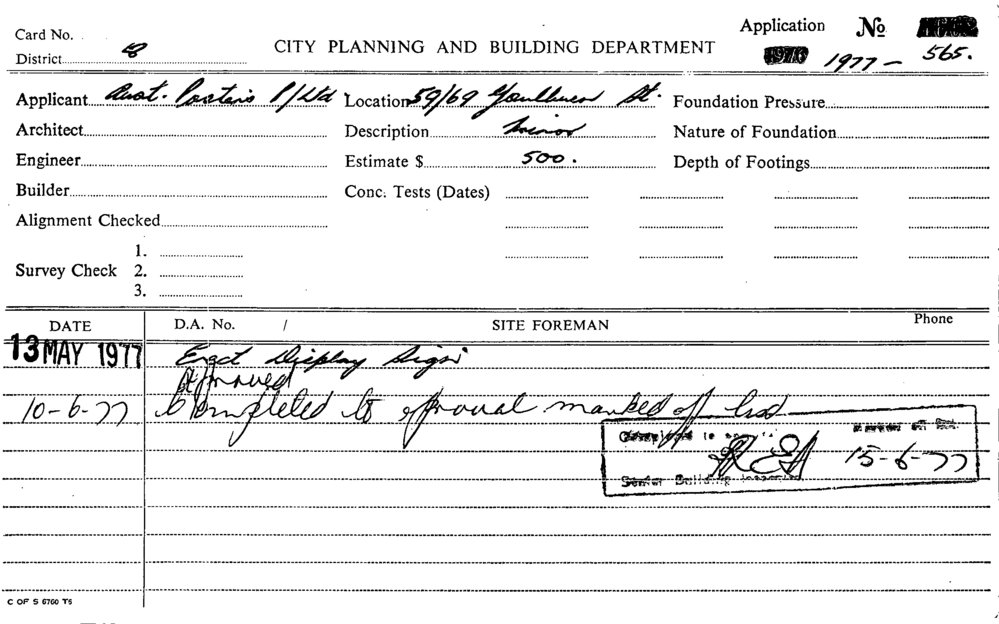 Card No.
Application No
District 8
CITY PLANNING AND BUILDING DEPARTMENT
1977 - 565.
Applicant Aust. Posters P/Ltd Location 59/69 Goulburn St. Foundation Pressure
Architect Description Minor Nature of Foundation
Engineer Estimate $ 500. Depth of Footings
Builder Conc. Tests (Dates)
Alignment Checked
1.
Survey Check 2.
3.
DATE D.A. No. / SITE FOREMAN Phone
13 MAY 1977 Erect Display Sign
Approved
10-6-77 Completed to approval marked off
15-6-77
Senior Building Inspector
C OF S 6760 T5